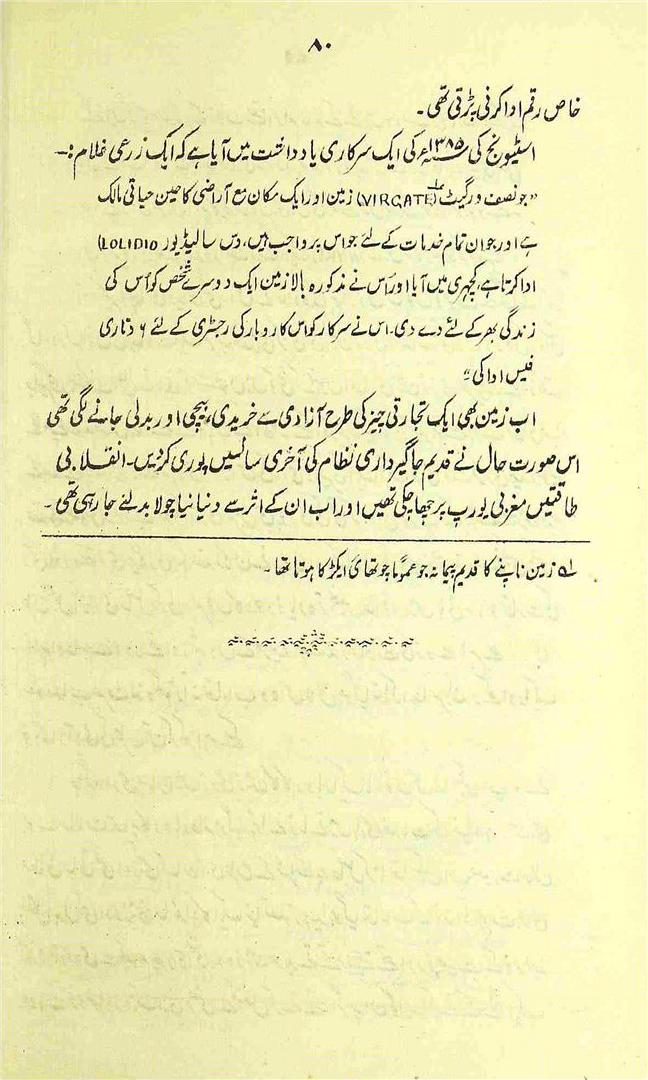 ۸۰
خاص رقم ادا کرنی پڑتی تھی۔
اسٹیونج کی ۱۳۸۵ء کی ایک سرکاری یادداشت میں آیا ہے کہ ایک زرعی غلام :۔
"جو نصف ورگیٹ (VIRGATE)ؔ۱ زمین اور ایک مکان مع آراضی کا حین حیاتی مالک
ہے اور جو ان تمام خدمات کے لئے جو اس پر واجب ہیں، دس سالیڈیور (LOLIDIO)
ادا کرتا ہے، کچہری میں آیا اور اس نے مذکورہ بالا زمین ایک دوسرے شخص کو اُس کی
زندگی بھر کے لئے دے دی۔ اس نے سرکار کو اس کاروبار کی رجٹری کے لئے ۶ دناری
فیس ادا کی"
اب زمین بھی ایک تجارتی چیز کی طرح آزادی سے خریدی، بیچی اور بدلی جانے لگی تھی
اس صورت حال نے قدیم جاگیرداری نظام کی آخری سانسیں پوری کر دیں۔ انقلابی
طاقتیں مغربی یورپ پر چھا چکی تھیں اور اب ان کے اثر سے دنیا نیا چولا بدلنے جا رہی تھی۔
۱ زمین ناپنے کا قدیم پیمانہ جو عموماً چوتھائی ایکڑ کا ہوتا تھا۔